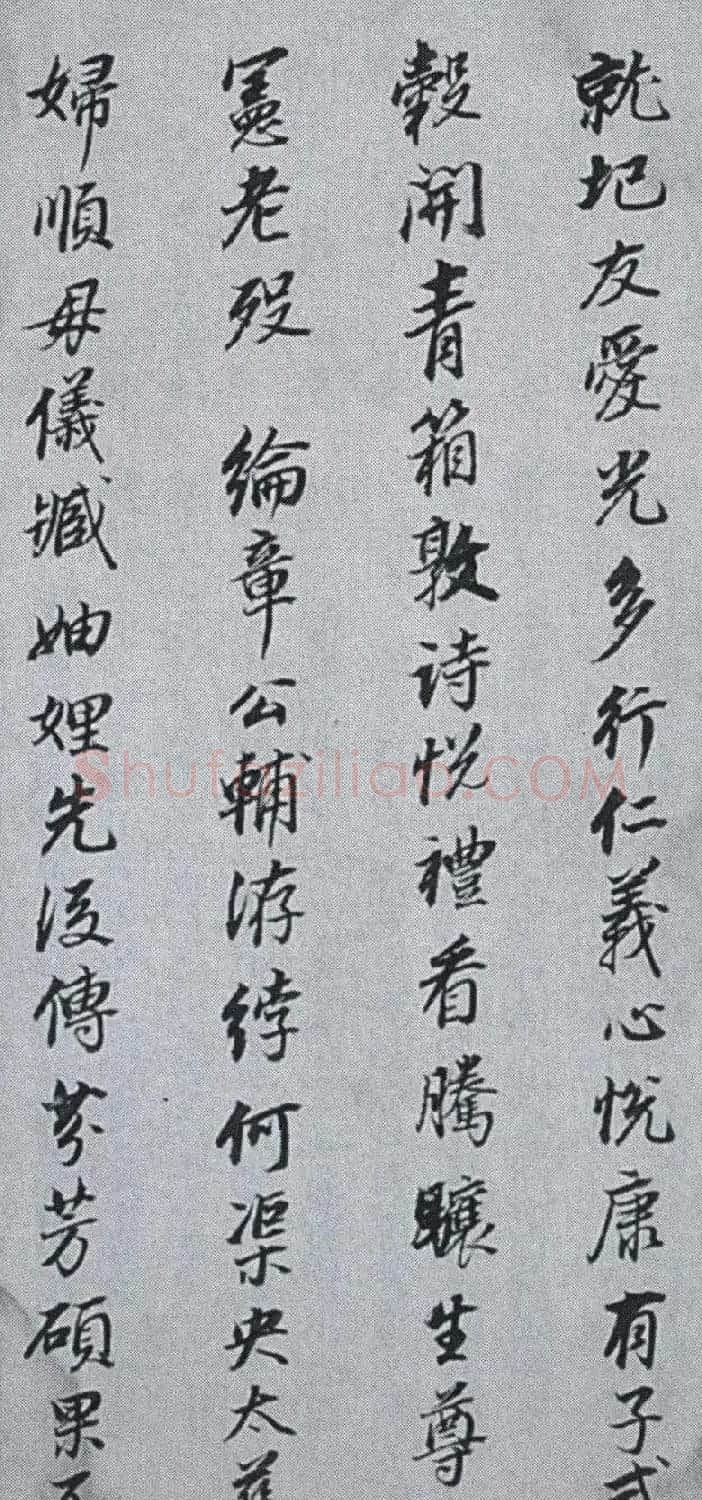 就圯友愛光多行仁義心悅康有子式
穀開青箱敦诗悅禮看騰驤生尊
憲老殁 綸章公輔游綍何渠央太
婦順毋儀臧妯娌先後傳芬芳碩果不
Shufaziliao.COM